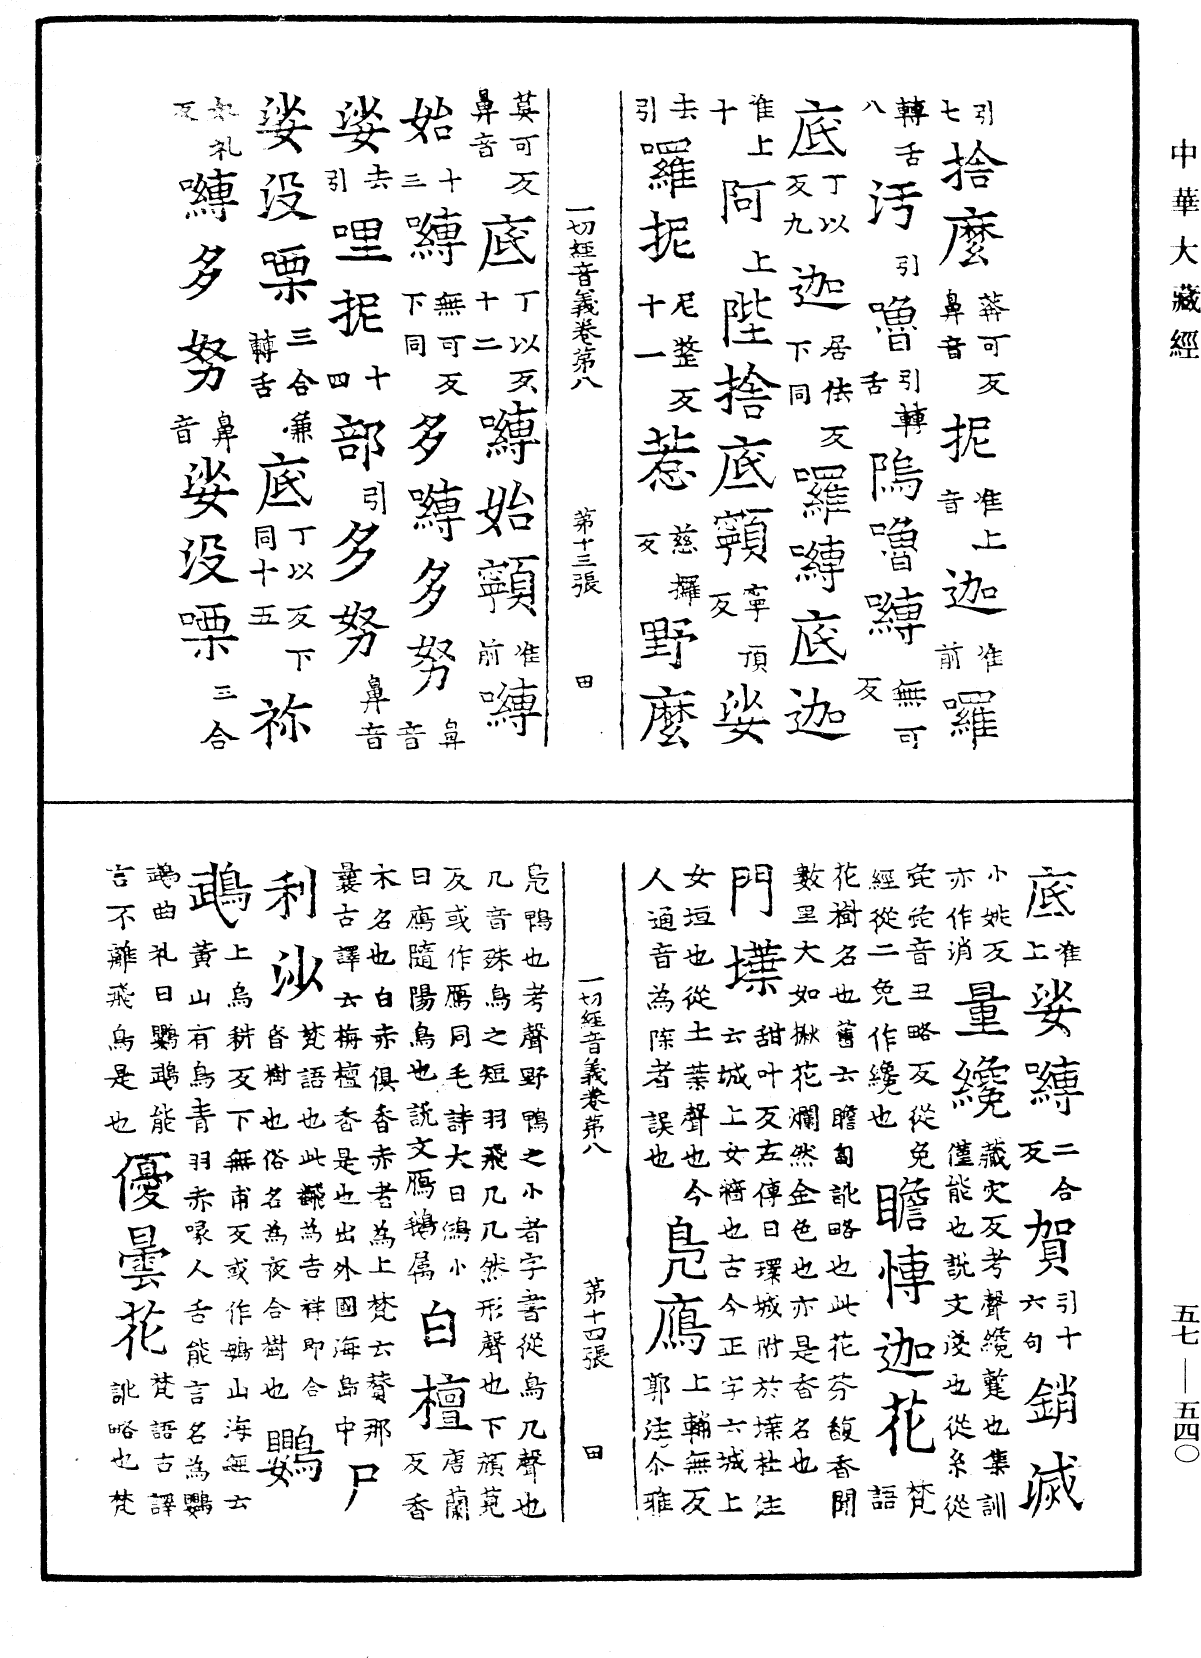 中華大藏經
五七—五四〇
引七捨麼莽可反鼻音抳准上音迦准前囉
轉舌八汚引嚕引轉舌隖嚕嚩無可反
底丁以反九迦居佉反下同囉嚩底迦
准上十阿上陛捨底顐寧頂反娑
去引囉抳尼整反十一惹慈攞反野麼
一切經音義卷第八 第十三張 田
莫可反鼻音底丁以反十二嚩始顐准前嚩
始十三嚩無可反下同多嚩多努鼻音
娑去引哩抳十四部引多努鼻音
娑没㗚三合兼轉舌底丁以反下同十五祢
奴礼反嚩多努鼻音娑没㗚三合
底准上娑嚩二合反賀引十六句銷滅
小姚反亦作消量纔藏灾反考聲纔蹔也集訓僅能也説文淺也從糸從
㲋㲋音丑略反從兔經從二兔作纔也瞻博迦花梵語
花樹名也舊云瞻蔔訛略也此花芬馥香聞數里大如楸花爛然金色也亦是香名也
門堞甜叶反左傳曰環城附於堞杜注云城上女牆也古今正字六城上
女垣也從土葉聲也今人通音為陎者誤也鳧鴈上輔無反郭注尒雅
鳧鴨也考聲野鴨之小者字書從鳥几聲也几音殊鳥之短羽飛几几然形聲也下顔
反或作鴈同毛詩大曰鴻小曰鴈隨陽鳥也説文鴈鵝属白檀唐蘭反香
木名也白赤俱香赤者為上梵云贊那曩古譯云栴檀香是也出外國海島中尸
利沙梵語也此翻為吉祥即合昏樹也俗名為夜合樹也鸚
䳇上烏耕反下無甫反或作鵡山海經云黄山有鳥青羽赤喙人舌能言名為鸚
䳇曲礼曰鸚䳇能言不離飛鳥是也優曇花梵語古譯訛略也梵
一切經音義卷第八 第十四張 田